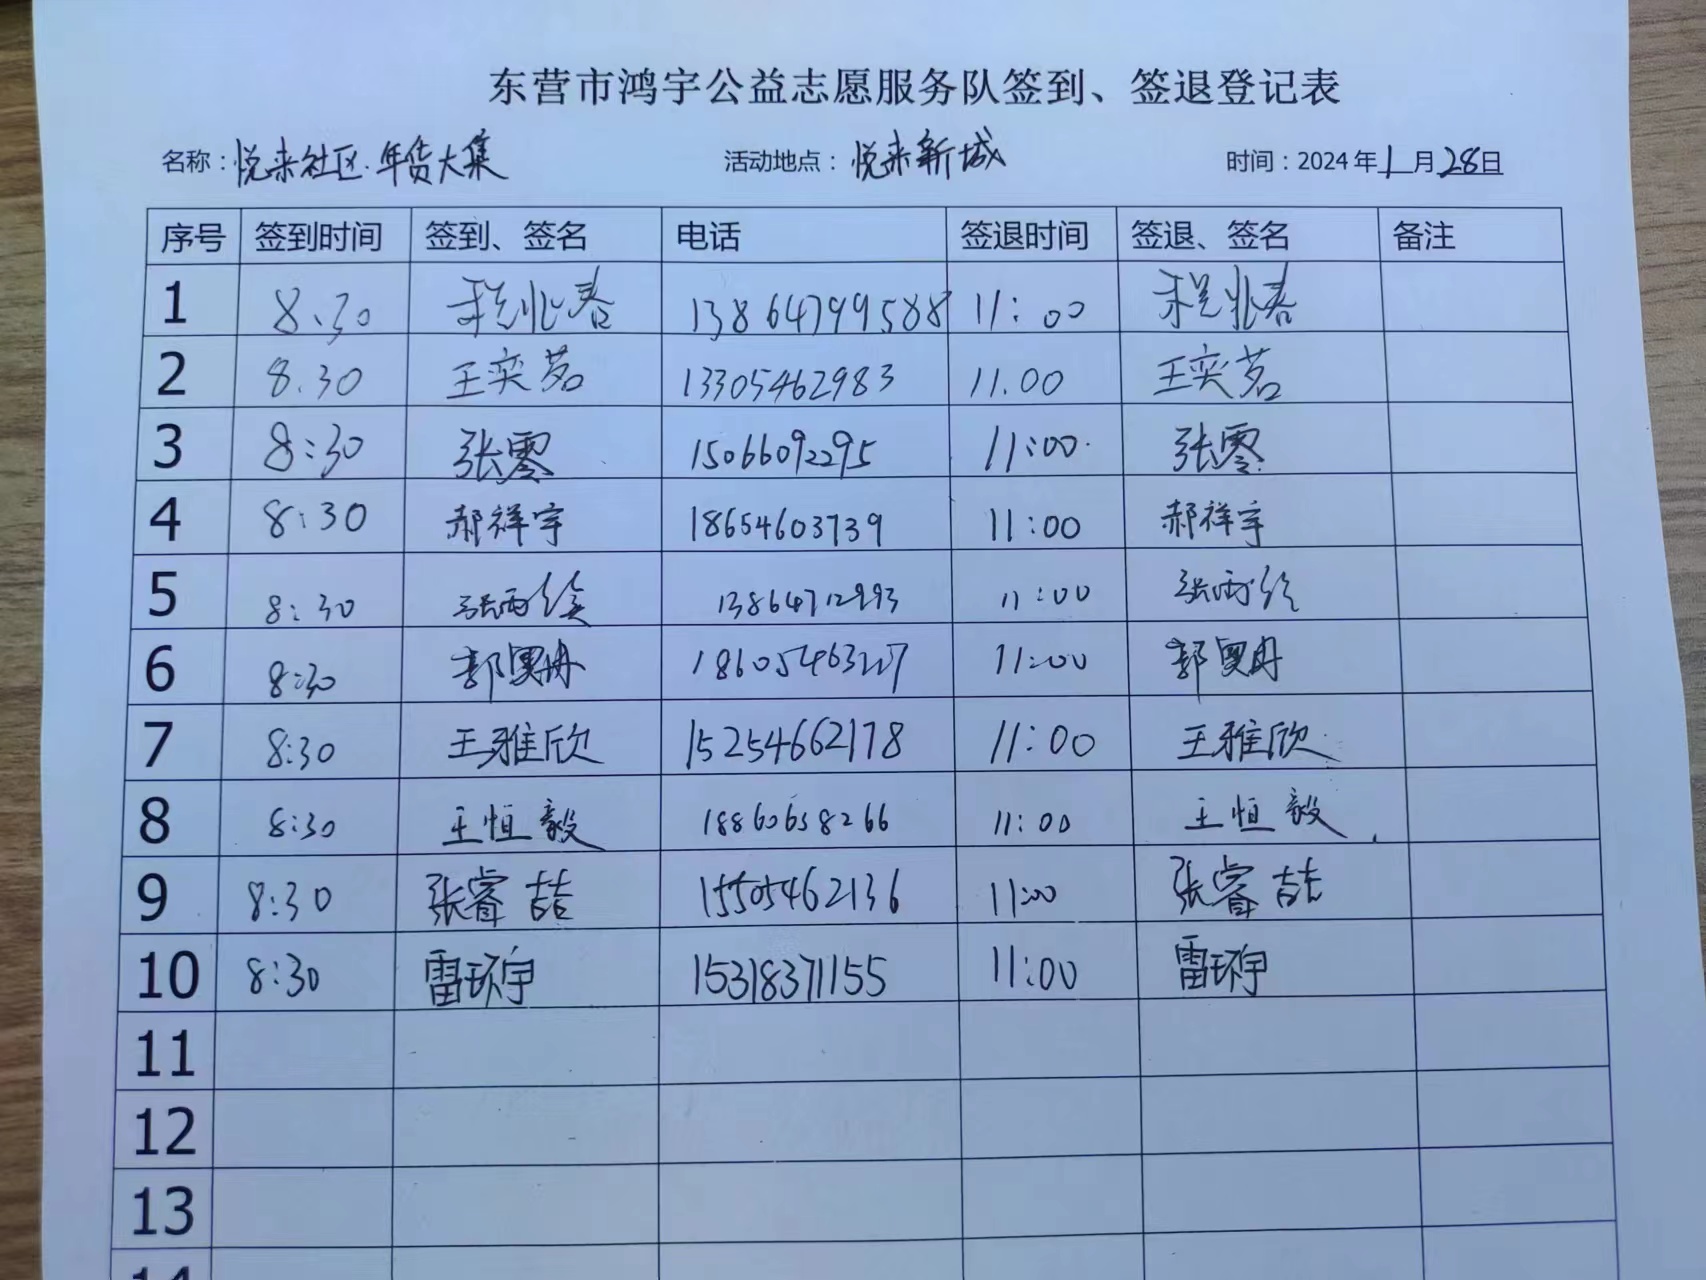 东营市鸿宇公益志愿服务队签到、签退登记表
名称：悦来社区.年货大集 活动地点：悦来新城 时间：2024年1月28日
序号 签到时间 签到、签名 电话 签退时间 签退、签名 备注
1 8.30 13864799588 11:00
2 8.30 王奕茗 13305462983 11.00 王奕茗
3 8:30 张零 15066092295 11:00 张零
4 8:30 郝祥宇 18654603739 11:00 郝祥宇
5 8:30 13864712993 11:00
6 8:30 18605463227 11:00
7 8:30 王雅欣 15254662178 11:00 王雅欣
8 8:30 王恒毅 18860658266 11:00 王恒毅
9 8:30 张睿喆 15505462136 11:00 张睿喆
10 8:30 雷环宇 15318371155 11:00 雷环宇
11
12
13